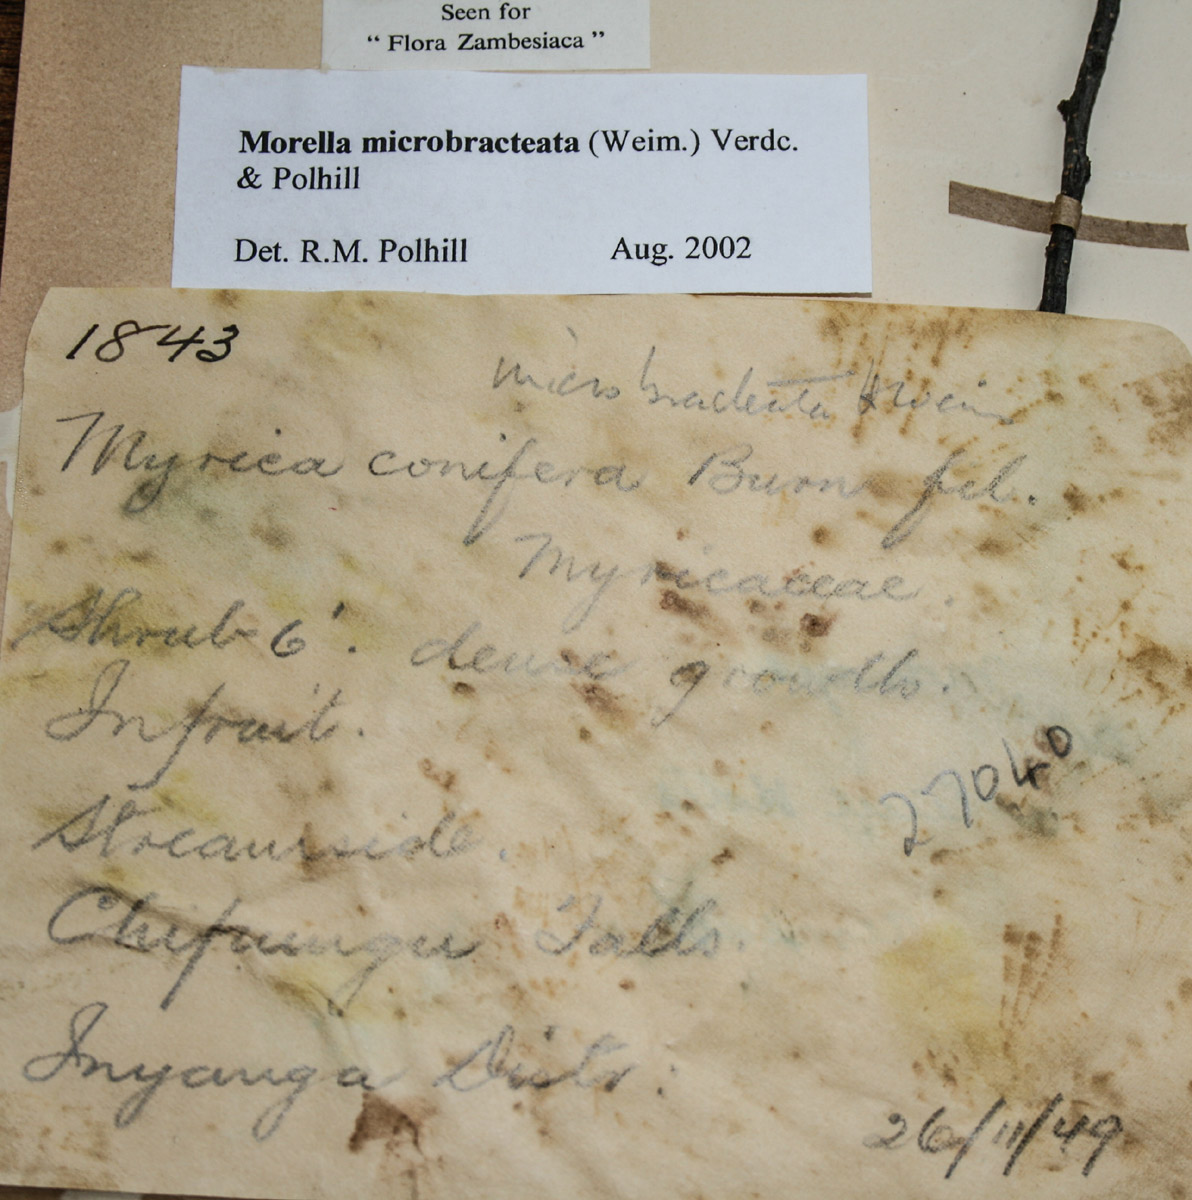 Seen for
“ Flora Zambesiaca ”
Morella microbracteata (Weim.) Verdc.
& Polhill
Det. R.M. Polhill Aug. 2002
1843
microbracteata Weim
Myrica conifera Burm fil.
Myricaceae.
Shrub 6'. dense growth.
In fruit.
27040
Streamside.
Chipungu Falls.
Inyanga Distr:
26/11/49